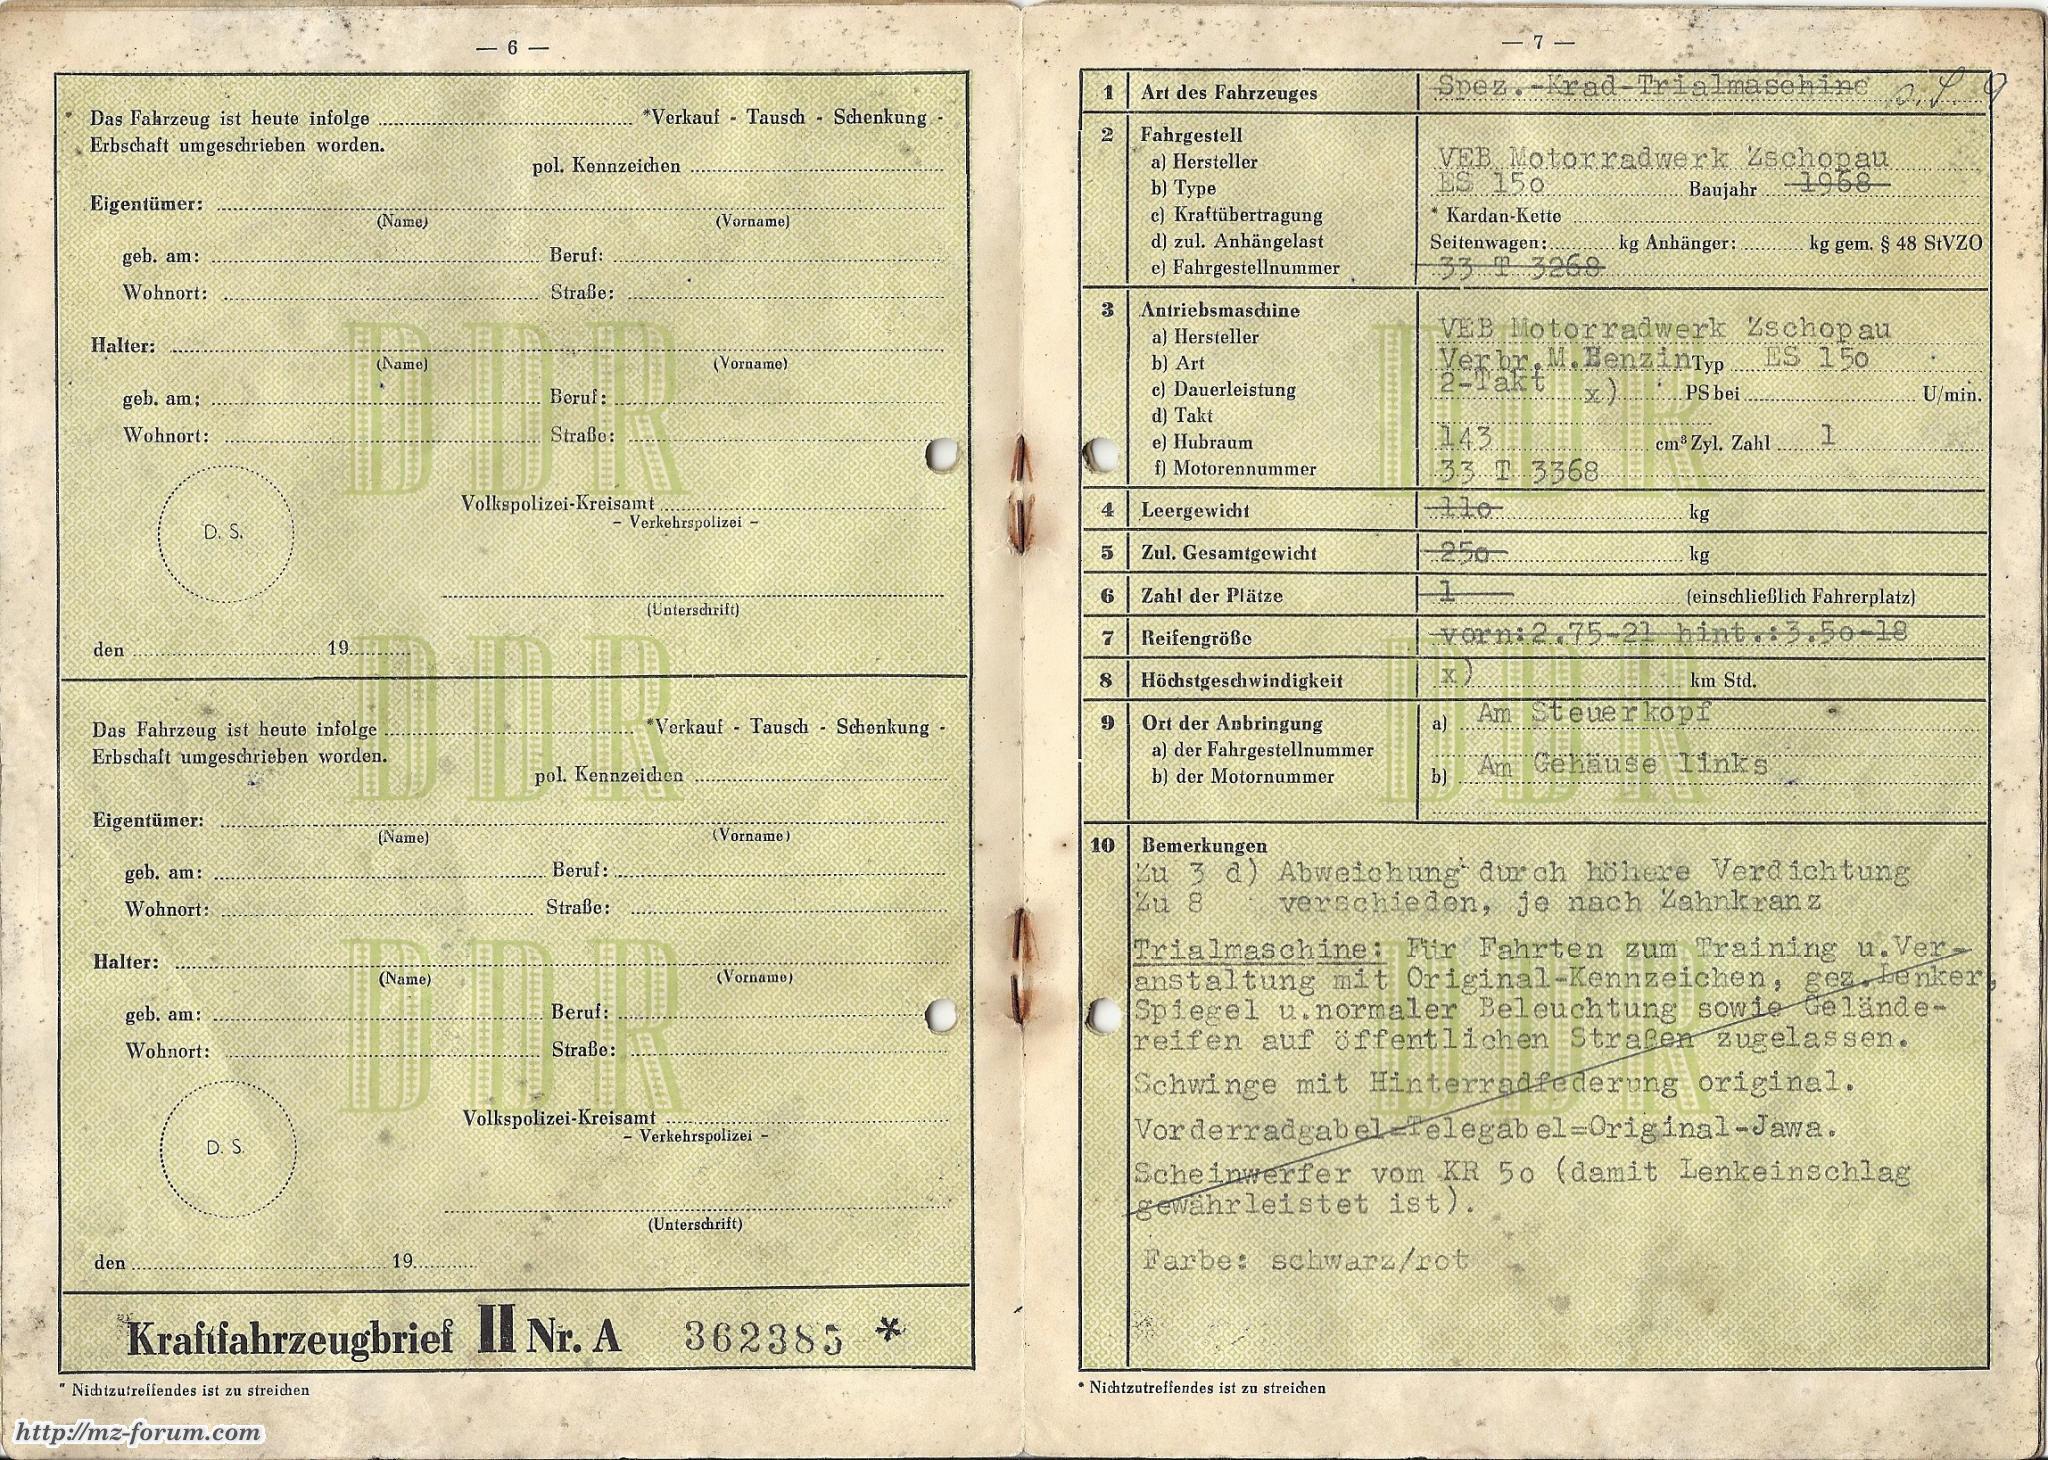 — 6 —
Das Fahrzeug ist heute infolge *Verkauf - Tausch - Schenkung -
Erbschaft umgeschrieben worden.
pol. Kennzeichen
Eigentümer:
(Name) (Vorname)
geb. am: Beruf:
Wohnort: Straße:
Halter:
(Name) (Vorname)
geb. am: Beruf:
Wohnort: Straße:
D. S.
Volkspolizei-Kreisamt
- Verkehrspolizei -
(Unterschrift)
den 19
Das Fahrzeug ist heute infolge *Verkauf - Tausch - Schenkung -
Erbschaft umgeschrieben worden.
pol. Kennzeichen
Eigentümer:
(Name) (Vorname)
geb. am: Beruf:
Wohnort: Straße:
Halter:
(Name) (Vorname)
geb. am: Beruf:
Wohnort: Straße:
D. S.
Volkspolizei-Kreisamt
- Verkehrspolizei -
(Unterschrift)
den 19
Kraftfahrzeugbrief II Nr. A 362385 *
* Nichtzutreffendes ist zu streichen
DDR
DDR
DDR
— 7 —
1 Art des Fahrzeuges Spez.-Krad-Trialmaschine
2 Fahrgestell
a) Hersteller VEB Motorradwerk Zschopau
b) Type ES 150 Baujahr 1968
c) Kraftübertragung * Kardan-Kette
d) zul. Anhängelast Seitenwagen: kg Anhänger: kg gem. § 48 StVZO
e) Fahrgestellnummer 33 T 3268
3 Antriebsmaschine
a) Hersteller VEB Motorradwerk Zschopau
b) Art Verbr.M.Benzin Typ ES 150
c) Dauerleistung 2-Takt x) PS bei U/min.
d) Takt
e) Hubraum 143 cm³ Zyl. Zahl 1
f) Motorennummer 33 T 3368
4 Leergewicht 110 kg
5 Zul. Gesamtgewicht 250 kg
6 Zahl der Plätze 1 (einschließlich Fahrerplatz)
7 Reifengröße vorn:2.75-21 hint.:3.50-18
8 Höchstgeschwindigkeit x) km Std.
9 Ort der Anbringung a) Am Steuerkopf
a) der Fahrgestellnummer
b) der Motornummer b) Am Gehäuse links
10 Bemerkungen
Zu 3 d) Abweichung durch höhere Verdichtung
Zu 8 verschieden, je nach Zahnkranz
Trialmaschine: Für Fahrten zum Training u.Ver-
anstaltung mit Original-Kennzeichen, gez.Lenker,
Spiegel u.normaler Beleuchtung sowie Gelände-
reifen auf öffentlichen Straßen zugelassen.
Schwinge mit Hinterradfederung original.
Vorderradgabel=Telegabel=Original-Jawa.
Scheinwerfer vom KR 50 (damit Lenkeinschlag
gewährleistet ist).
Farbe: schwarz/rot
* Nichtzutreffendes ist zu streichen
DDR
DDR
DDR
http://mz-forum.com